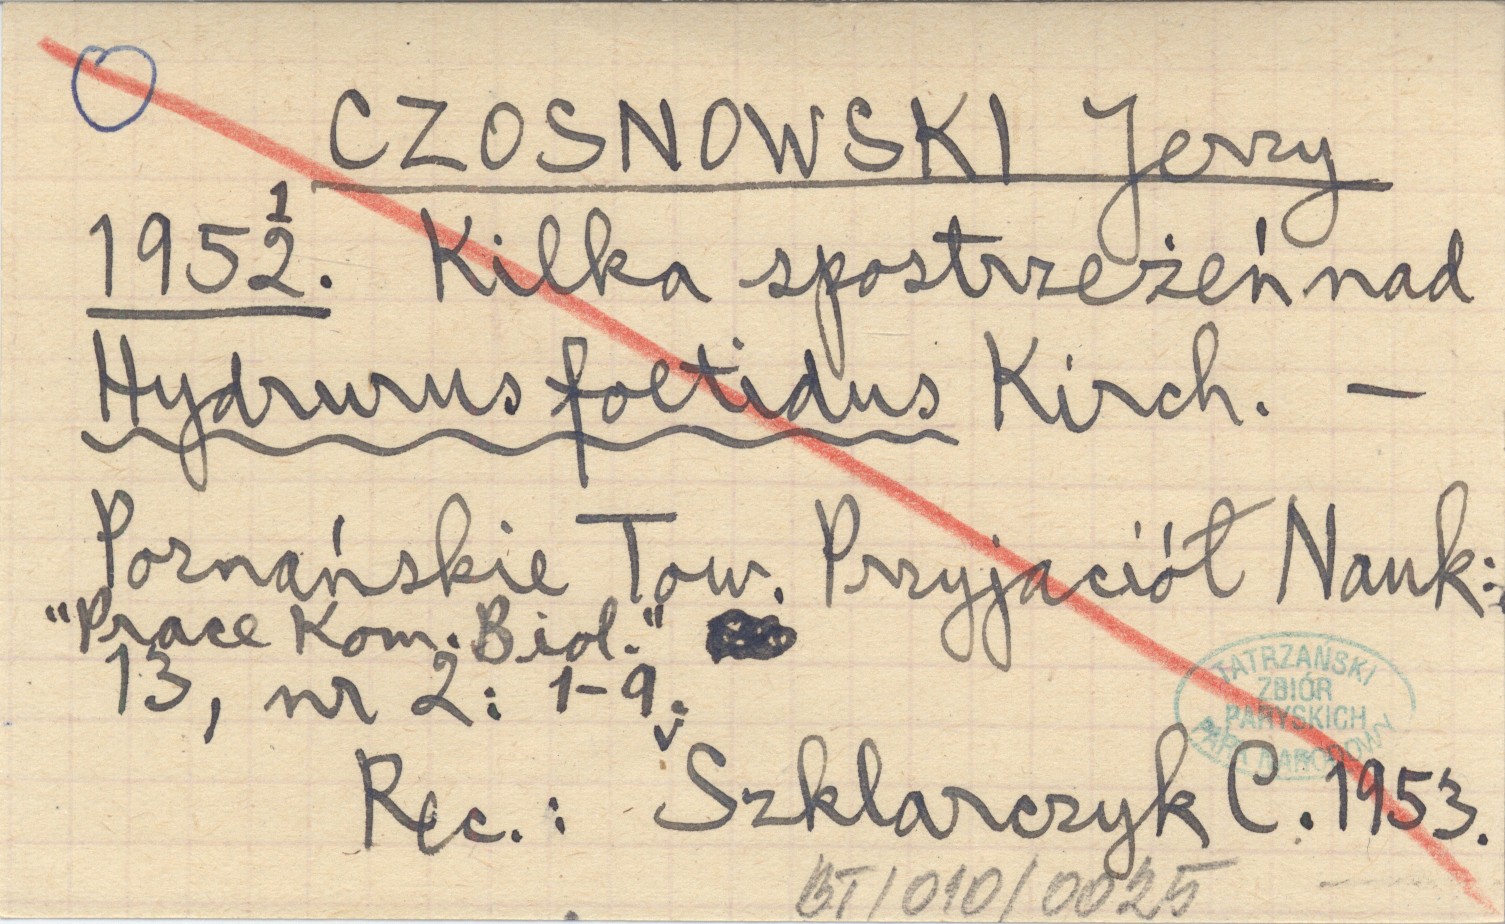 CZOSNOWSKI Jerzy
1
1952. Kilka spostrzeżeń nad
Hydrurus foetidus Kirch. —
Poznańskie Tow. Przyjaciół Nauk:
"Prace Kom. Biol."
13, nr 2: 1-9.
TATRZAŃSKI
ZBIÓR
PARYSKICH
PARK NARODOWY
Rec.: Szklarczyk C. 1953.
BT/010/0025